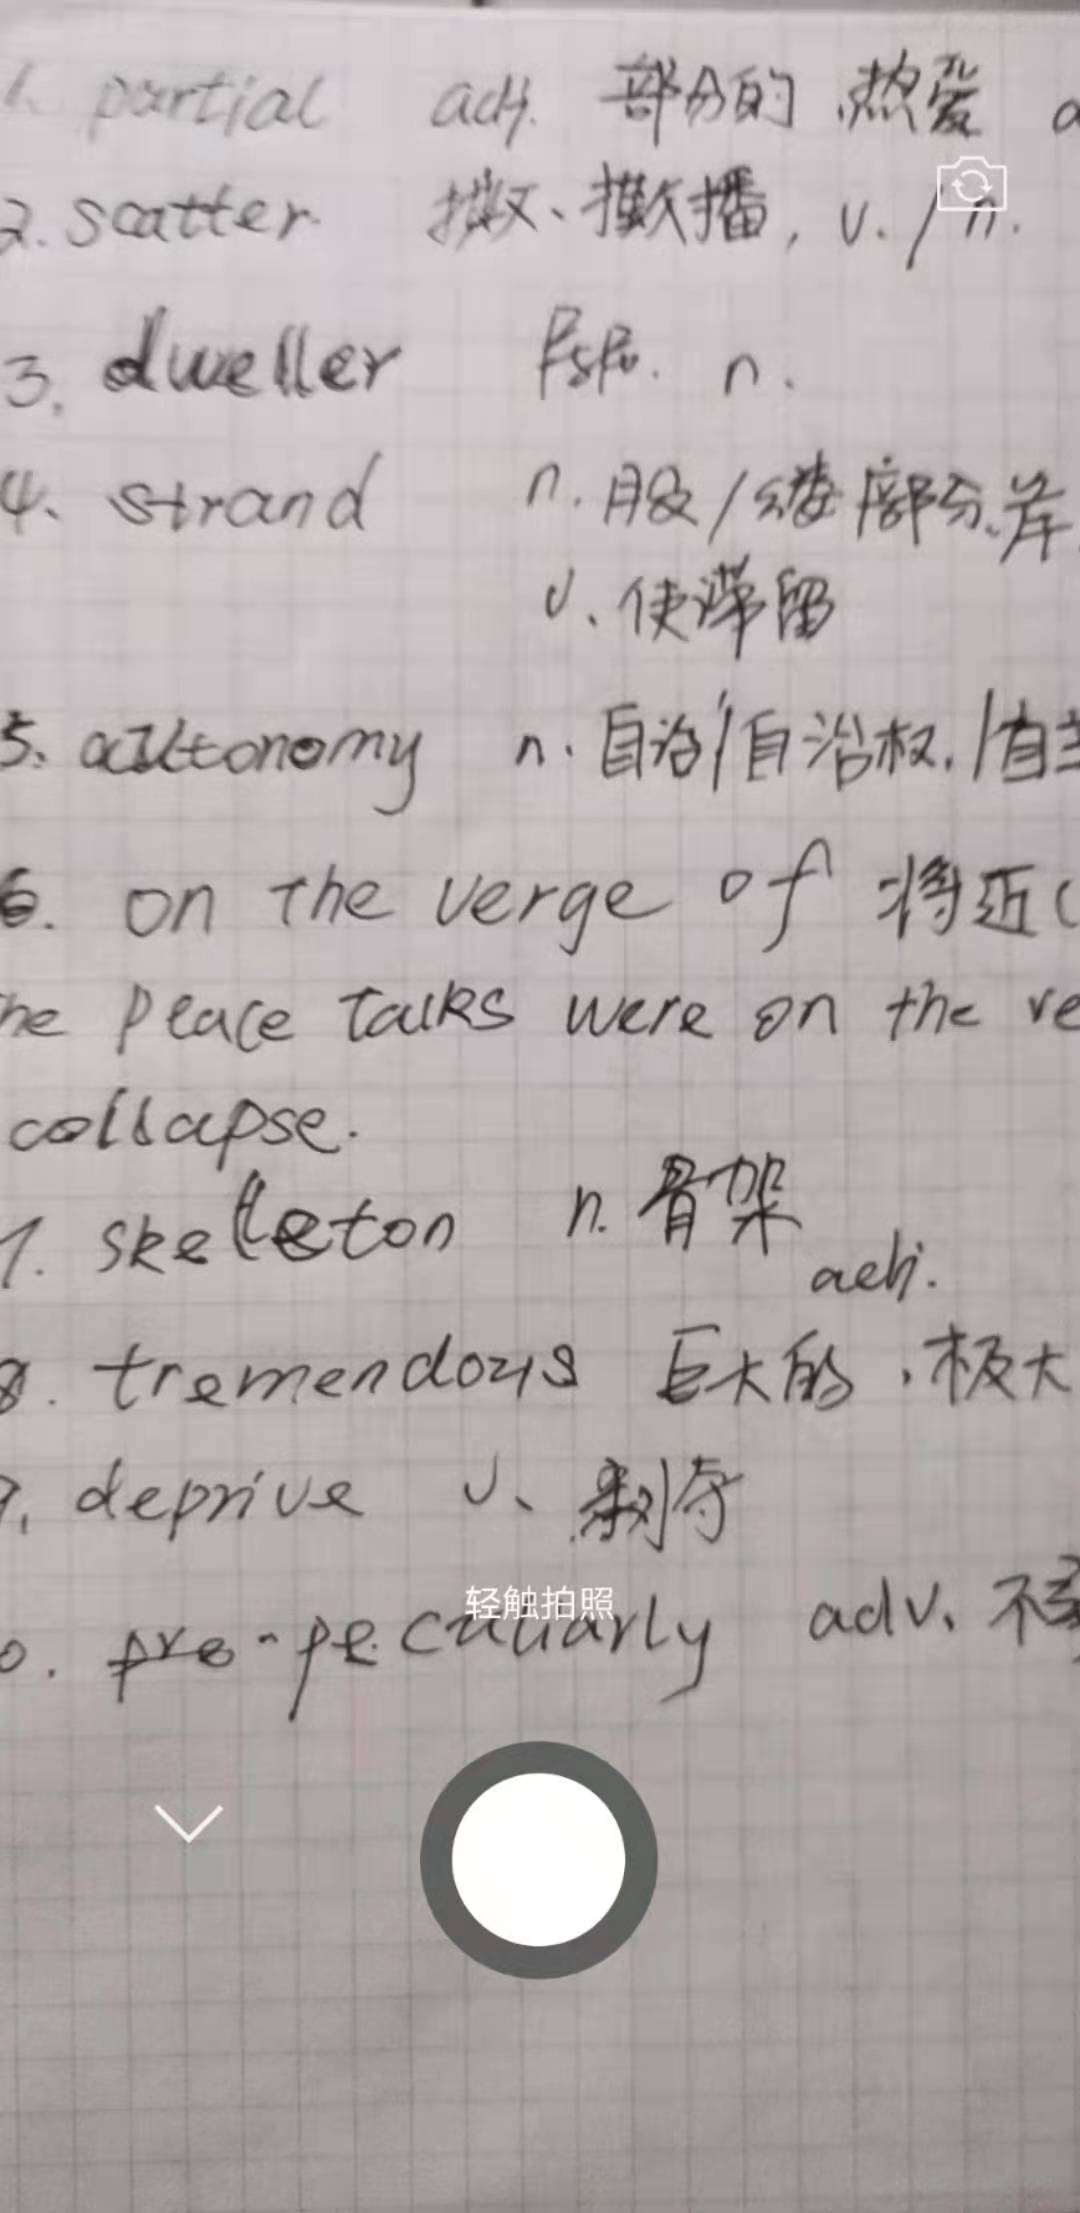 1. partial adj. 部分的、热爱
2. scatter 撒、撒播, v. / n.
3. dweller n.
4. strand n. 股/缕 部分、岸
v. 使滞留
5. autonomy n. 自治/自治权. /自主
6. on the verge of 将近(
he peace talks were on the ve
collapse.
7. skeleton n. 骨架
adj.
8. tremendous 巨大的、极大
9. deprive v. 剥夺
轻触拍照
0. pre-peculiarly adv. 不